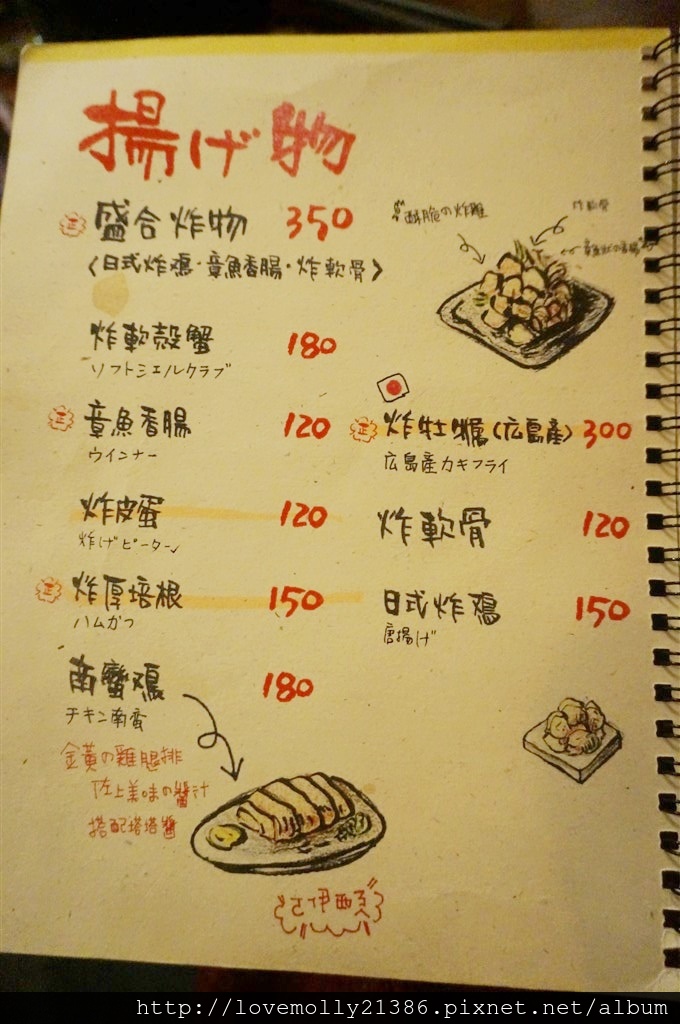 揚げ物
盛合炸物 350
〈日式炸鶏・章魚香腸・炸軟骨〉
酥脆の炸雞
炸軟骨
炸軟殼蟹 180
ソフトシェルクラブ
章魚香腸 120
ウインナー
炸皮蛋 120
炸げピータン
炸厚培根 150
ハムカツ
南蠻鶏 180
チキン南蛮
金黃の雞腿排
佐上美味の醬汁
搭配塔塔醬
炸牡蠣(広島産) 300
広島産カキフライ
炸軟骨 120
日式炸鶏 150
唐揚げ
http://lovemolly21386.pixnet.net/album